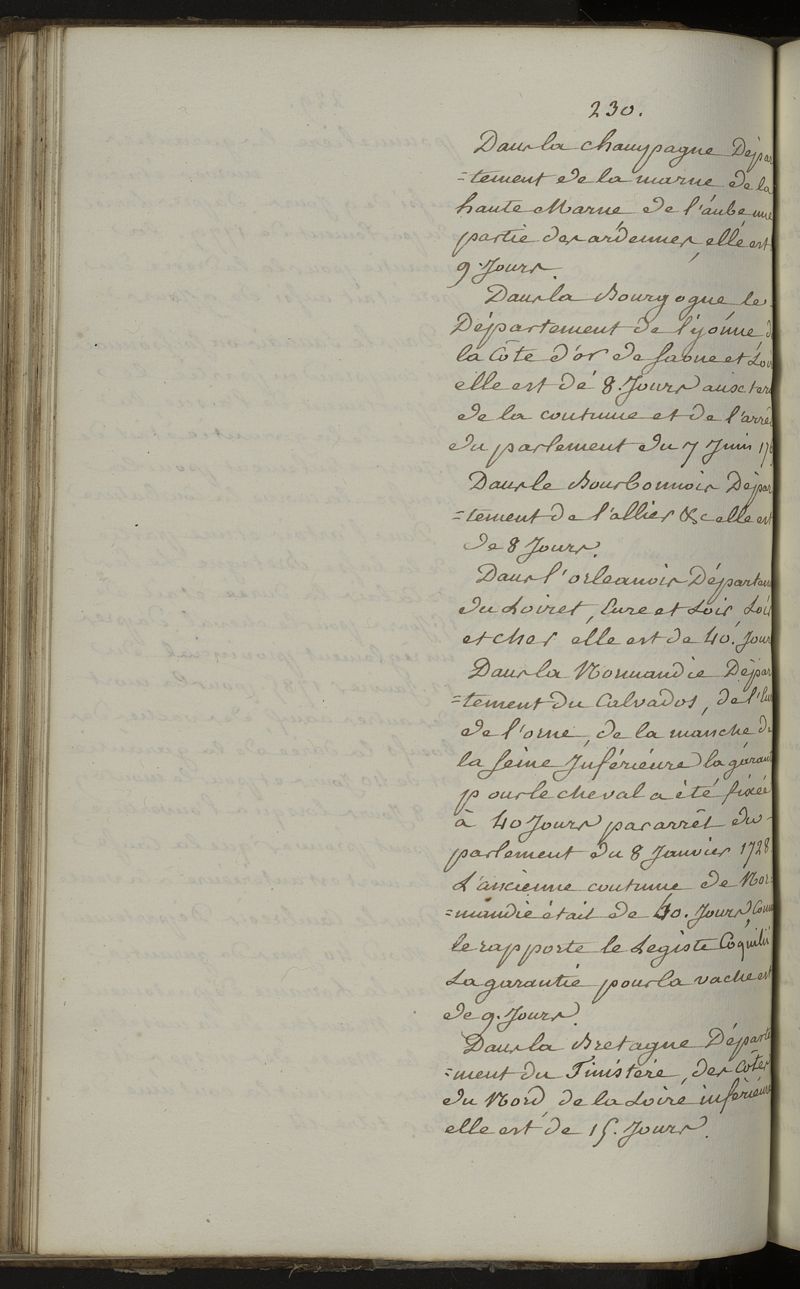 230.
Dans la champagne Dépar
=tement de la marne, de la
haute Marne de l'aube une
partie des ardennes, elle est
9. Jours.
Dans la Bourgogne le
Département de l'yonne d
la Côte d'or de Saone et Loi
elle est de 8. Jours aux ter
de la coutume et de l'arrê
du parlement du 7 Juin 17
Dans le Bourbonnois Dépar
=tement de l'allier &c elle est
de 8 Jours.
Dans l'orleanois Départem
du Loiret, Eure et Loir, Loir
et cher, elle est de 40. Jours
Dans la Normandie Dépar
=tement du Calvados, de l'Eur
de l'orne, de la manche de
la Seine Inférieure la garant
pour le cheval a été fixée
à 40 Jours par arrêt du
parlement du 8 Janvier 1728.
L'ancienne coutume de Nor=
=mandie était de 40. Jours, Comm
le rapporte le Legiste Coquille
La garantie pour la vache est
de 9. Jours.
Dans la Bretagne Départe
=ment du Finistere, des Côtes
du Nord de la Loire inférieure
elle est de 15. Jours.